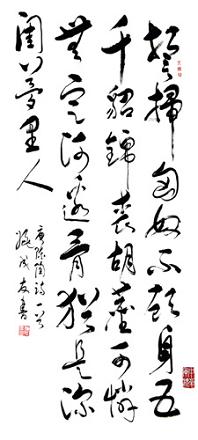 誓掃匈奴不顧身五
千貂錦喪胡塵可憐
無定河邊骨猶是深
閨夢里人
唐陳陶詩一首
友書